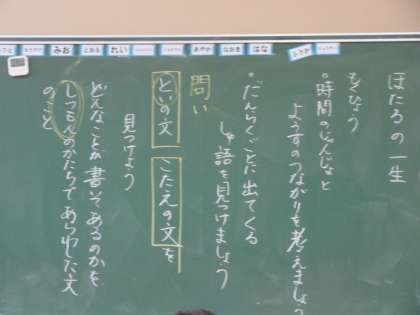 ほたるの一生
もくひょう
・時間のじゅんじょと
ようすのつながりを考えましょう
・だんらくごとに出てくる
しゅ語を見つけましょう
問い
といの文 こたえの文を
見つけよう
どんなことが書いてあるのかを
しつもんのかたちであらわした文
のこと
みお
れい
あやか
なおき
はな